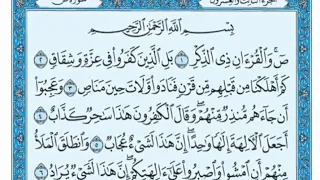 الجزء الثالث والعشرون سورة ص
بِسْمِ اللَّهِ الرَّحْمَٰنِ الرَّحِيمِ
صٓ ۚ وَالْقُرْءَانِ ذِي الذِّكْرِ ١ بَلِ الَّذِينَ كَفَرُوا فِي عِزَّةٍ وَشِقَاقٍ ٢
كَمْ أَهْلَكْنَا مِن قَبْلِهِم مِّن قَرْنٍ فَنَادَوا وَّلَاتَ حِينَ مَنَاصٍ ٣ وَعَجِبُوا
أَن جَاءَهُم مُّنذِرٌ مِّنْهُمْ ۖ وَقَالَ الْكَٰفِرُونَ هَٰذَا سَٰحِرٌ كَذَّابٌ ٤
أَجَعَلَ الْآلِهَةَ إِلَٰهًا وَٰحِدًا ۖ إِنَّ هَٰذَا لَشَيْءٌ عُجَابٌ ٥ وَانطَلَقَ الْمَلَأُ
مِنْهُمْ أَنِ امْشُوا وَاصْبِرُوا عَلَىٰ ءَالِهَتِكُمْ ۖ إِنَّ هَٰذَا لَشَيْءٌ يُرَادُ ٦